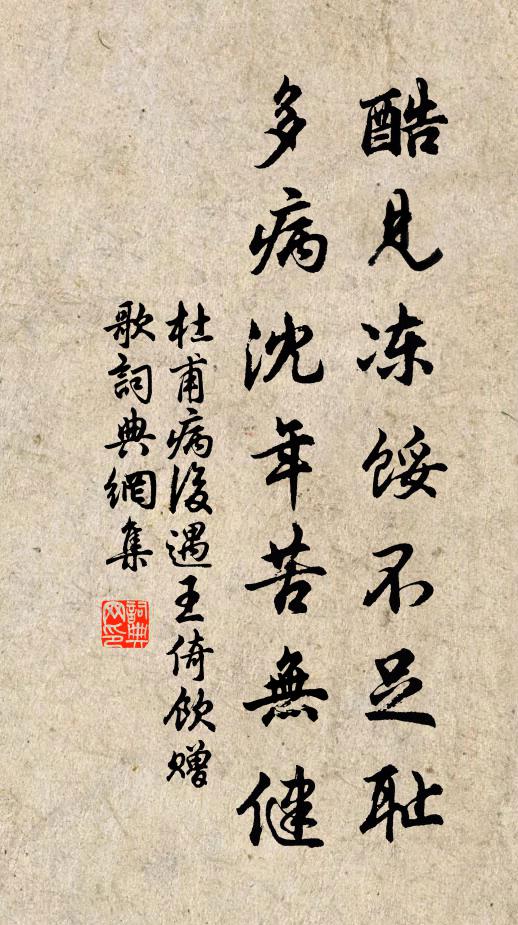 酷見冻馁不足耻
多病沈年苦無健
杜甫病後遇王倚飲赠
歌詞典網集
詞典
网印